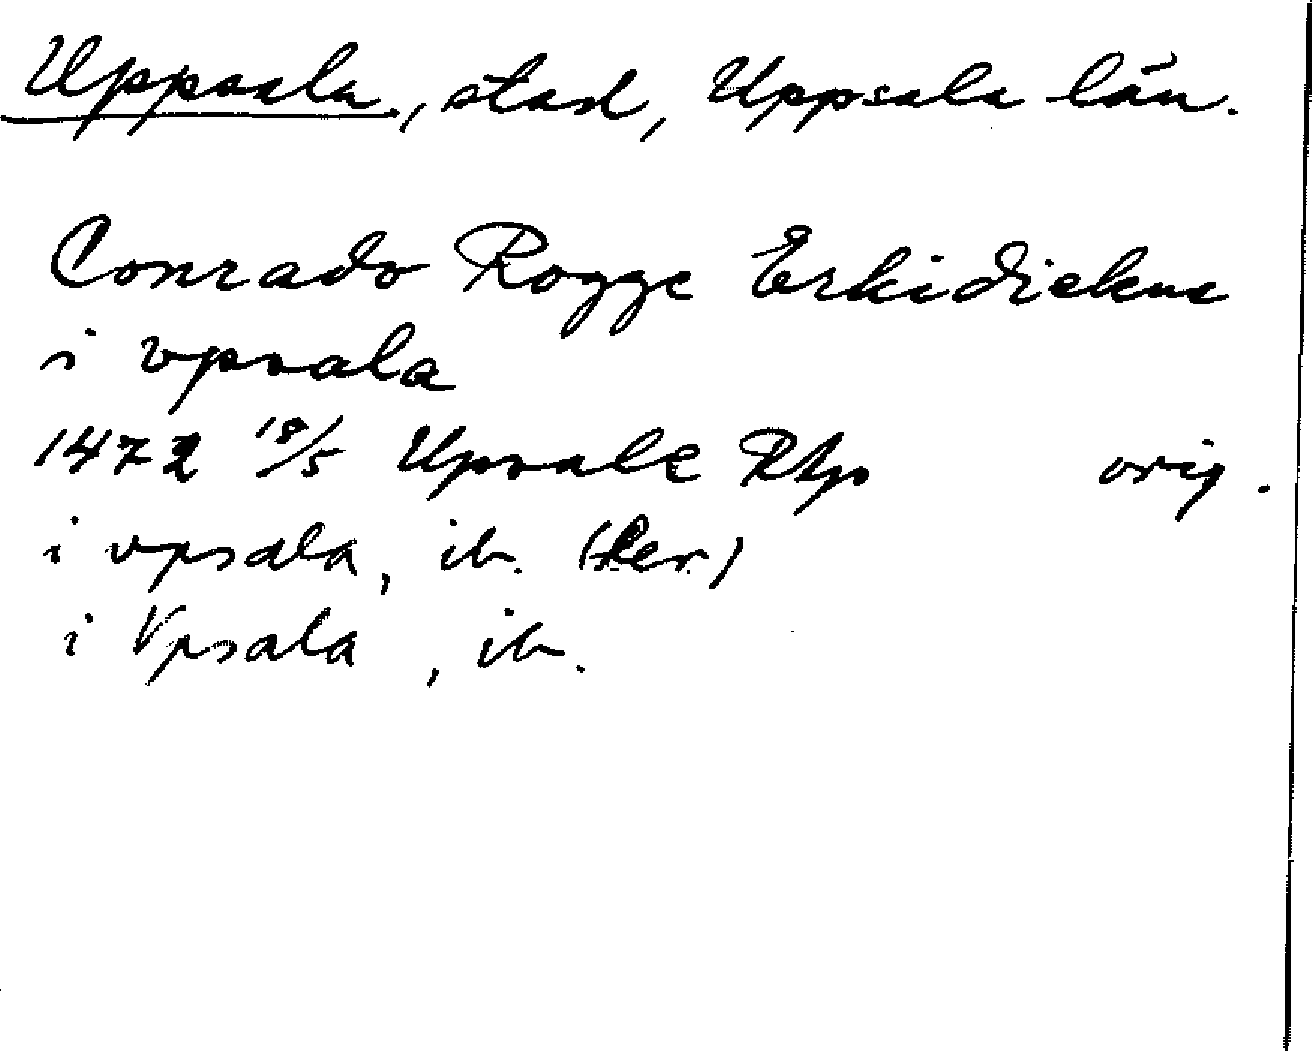 Uppsala, stad, Uppsala län.
Conrado Rogge Erkidiekne
i vpsala
1472 18/5 Upsale RAp orig.
i vpsala, ib. (fler)
i Vpsala, ib.